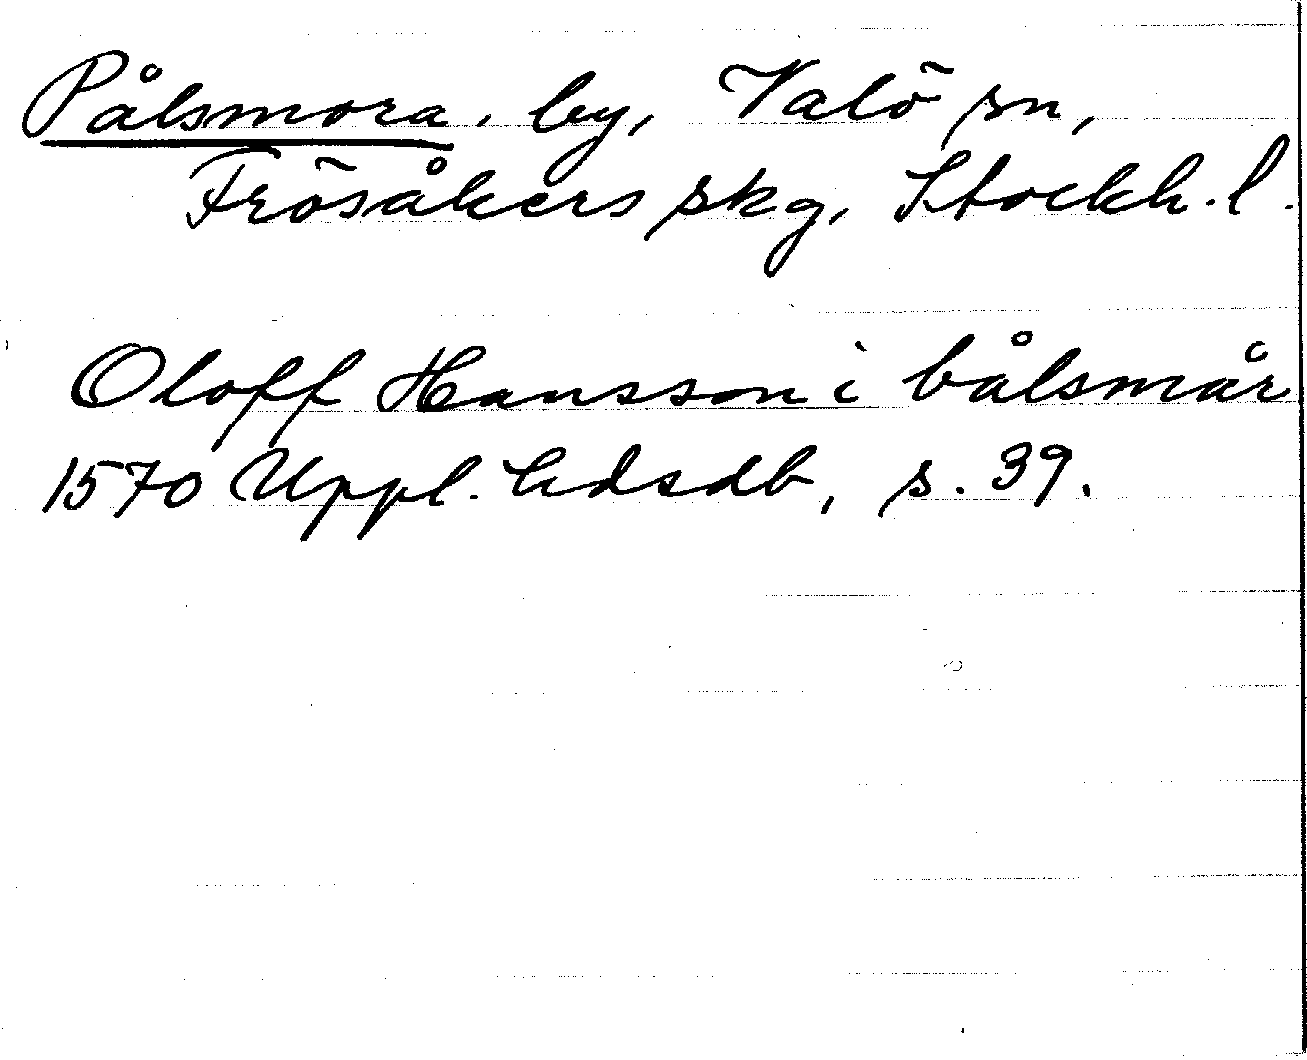 Pålsmora, by, Valö sn,
Frösåkers skg, Stockh. l.
Oloff Hansson i bålsmår
1570 Uppl. hdsdb, s. 39.